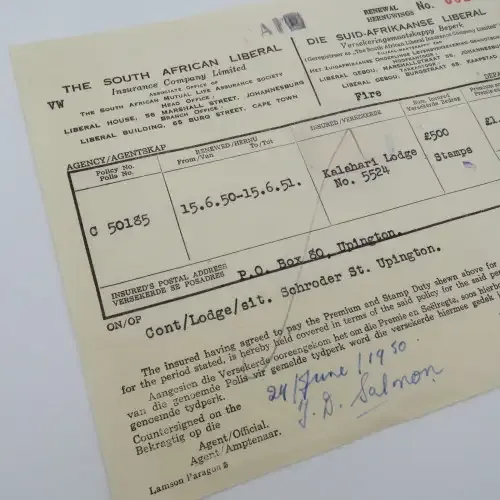 A
RENEWAL No.
HERNUWINGS
THE SOUTH AFRICAN LIBERAL
Insurance Company Limited
ASSOCIATE OFFICE OF
THE SOUTH AFRICAN MUTUAL LIFE ASSURANCE SOCIETY
HEAD OFFICE:
LIBERAL HOUSE, 56 MARSHALL STREET, JOHANNESBURG
BRANCH OFFICE:
LIBERAL BUILDING, 65 BURG STREET, CAPE TOWN
VW
DIE SUID-AFRIKAANSE LIBERAL
Versekeringsmaatskappy Beperk
LIBERAL GEBOU, MARSHALLSTRAAT 56, JOHANNES
LIBERAL GEBOU, BURGSTRAAT 65, KAAPSTAD
Fire
AGENCY/AGENTSKAP
Policy No.
Polis No.
RENEWED/HERNU
From/Van To/Tot
INSURED/VERSEKERDE
Sum Insured
Versekerde Bedrag
C 50185
15.6.50-15.6.51.
Kalahari Lodge
No. 5524
£500
Stamps
£1.
INSURED'S POSTAL ADDRESS
VERSEKERDE SE POSADRES
P.O. Box 80, Upington.
ON/OP
Cont/Lodge/sit. Schroder St. Upington.
The insured having agreed to pay the Premium and Stamp Duty shewn above for
for the period stated, is hereby held covered in terms of the said policy for the said per
Aangesien die Versekerde ooreengekom het om die Premie en Seëlregte, soos hierbo
van die genoemde Polis vir gemelde tydperk word die versekerde hiermee gedek
genoemde tydperk.
Countersigned on the
Bekragtig op die
24/June/1950.
J. D. Salmon
Agent/Official.
Agent/Amptenaar.
Lamson Paragon